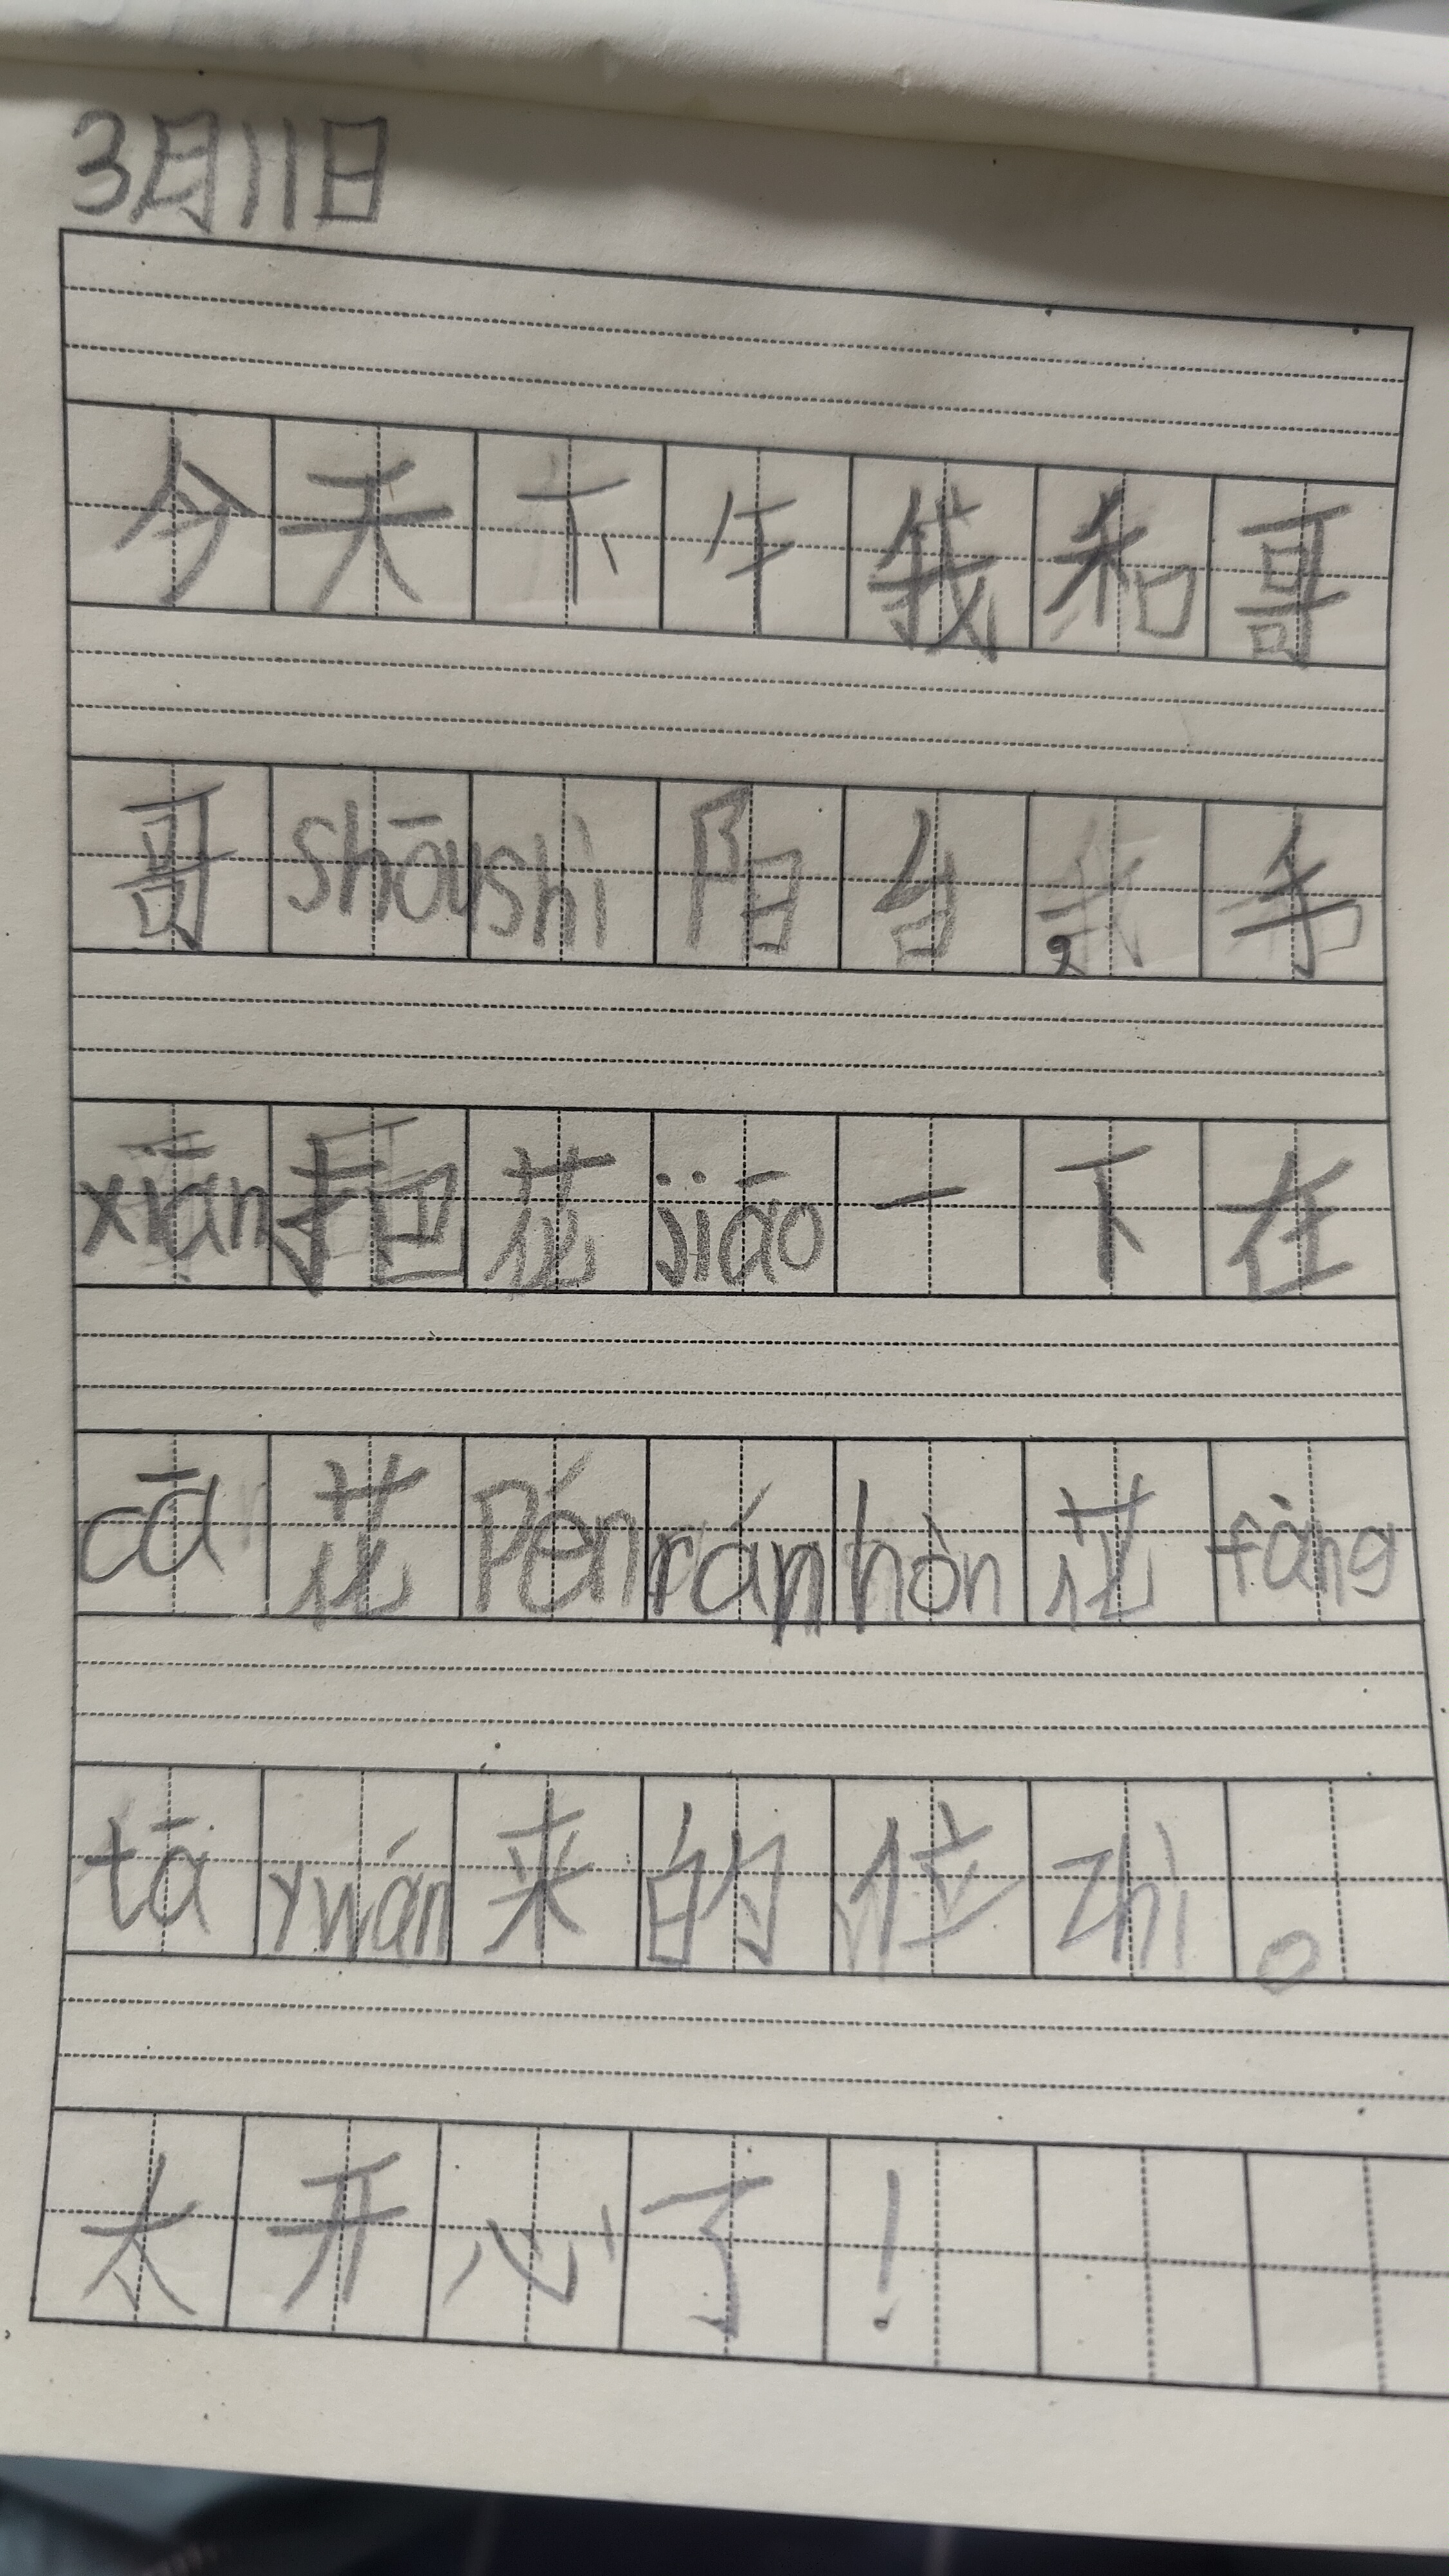 3月11日
今天下午我和哥
哥shōushi阳台我手
xiān把花jiāo一下在
cā花Pénránhòn花fàng
tāyuán来的位zhì。
太开心了！